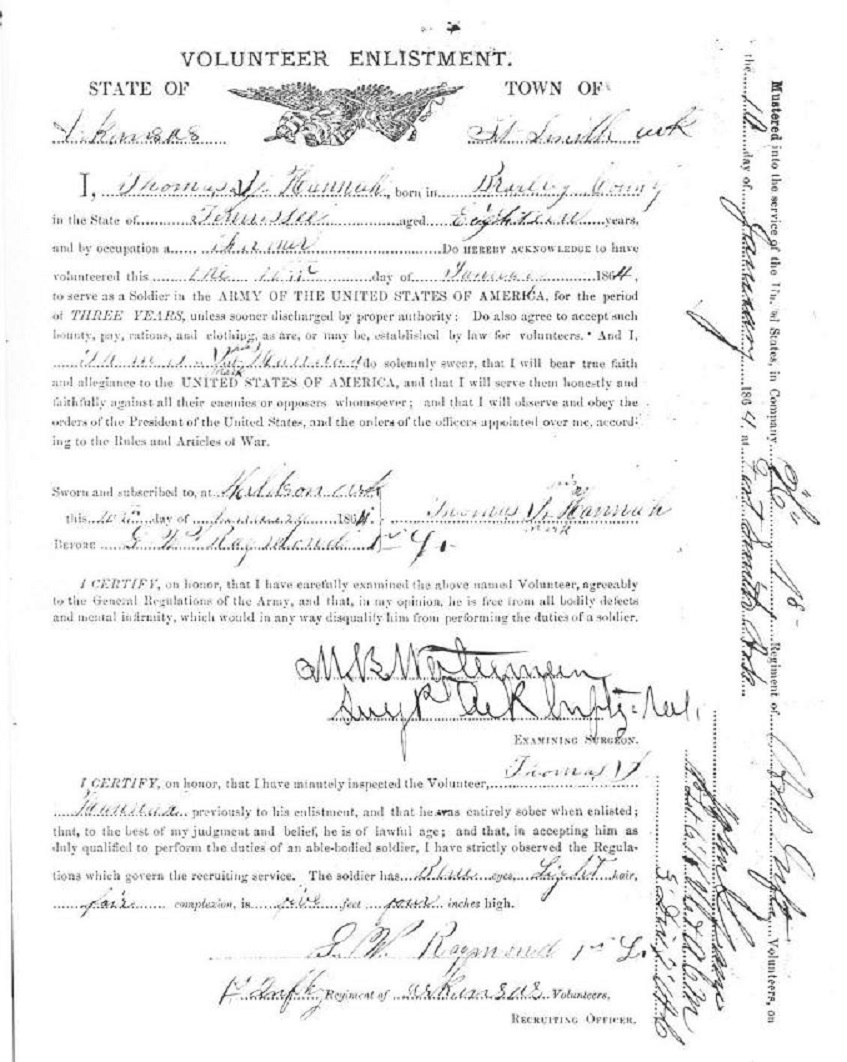 VOLUNTEER ENLISTMENT.
STATE OF TOWN OF
Arkansas Ft Smith Ark
I, Thomas J. Hannah, born in Bradley County
in the State of Tennessee aged Eighteen years,
and by occupation a Farmer Do HEREBY ACKNOWLEDGE to have
volunteered this the 10th day of January 1864,
to serve as a Soldier in the ARMY OF THE UNITED STATES OF AMERICA, for the period
of THREE YEARS, unless sooner discharged by proper authority: Do also agree to accept such
bounty, pay, rations, and clothing, as are, or may be, established by law for volunteers. And I,
Thomas Hannah do solemnly swear, that I will bear true faith
and allegiance to the UNITED STATES OF AMERICA, and that I will serve them honestly and
faithfully against all their enemies or opposers whomsoever; and that I will observe and obey the
orders of the President of the United States, and the orders of the officers appointed over me, accord-
ing to the Rules and Articles of War.
Sworn and subscribed to, at Ark
this 10th day of January 1864. Thomas J. Hannah
his
mark
BEFORE G W Raymond 1st L.
I CERTIFY, on honor, that I have carefully examined the above named Volunteer, agreeably
to the General Regulations of the Army, and that, in my opinion, he is free from all bodily defects
and mental infirmity, which would in any way disqualify him from performing the duties of a soldier.
M B Waterman
Surg 1st Ark Infty Vol.
EXAMINING SURGEON.
I CERTIFY, on honor, that I have minutely inspected the Volunteer, Thomas J
Hannah previously to his enlistment, and that he was entirely sober when enlisted;
that, to the best of my judgment and belief, he is of lawful age; and that, in accepting him as
duly qualified to perform the duties of an able-bodied soldier, I have strictly observed the Regula-
tions which govern the recruiting service. The soldier has Blue eyes, Light hair,
fair complexion, is five feet four inches high.
G. W. Raymond 1st L.
1st Infty Regiment of Arkansas Volunteers,
RECRUITING OFFICER.
Mustered into the service of the United States, in Company "K" 1st Regiment of Ark Infty Volunteers, on
the 10 day of January 1864, at Fort Smith Ark